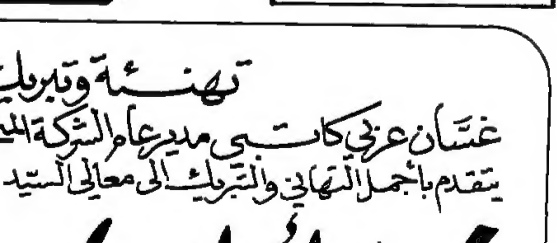 تهنئة وتبريك
غسّان عزبي كاتبي مدير عام الشركة
يتقدم بأجمل التهاني والتبريك الى معالي السيد